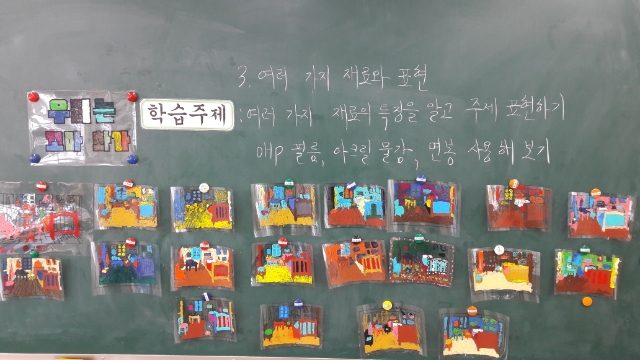 3. 여러 가지 재료와 표현
우리는
꼬마 화가
학습주제 : 여러 가지 재료의 특징을 알고 주제 표현하기
OHP 필름, 아크릴 물감, 면봉 사용해 보기